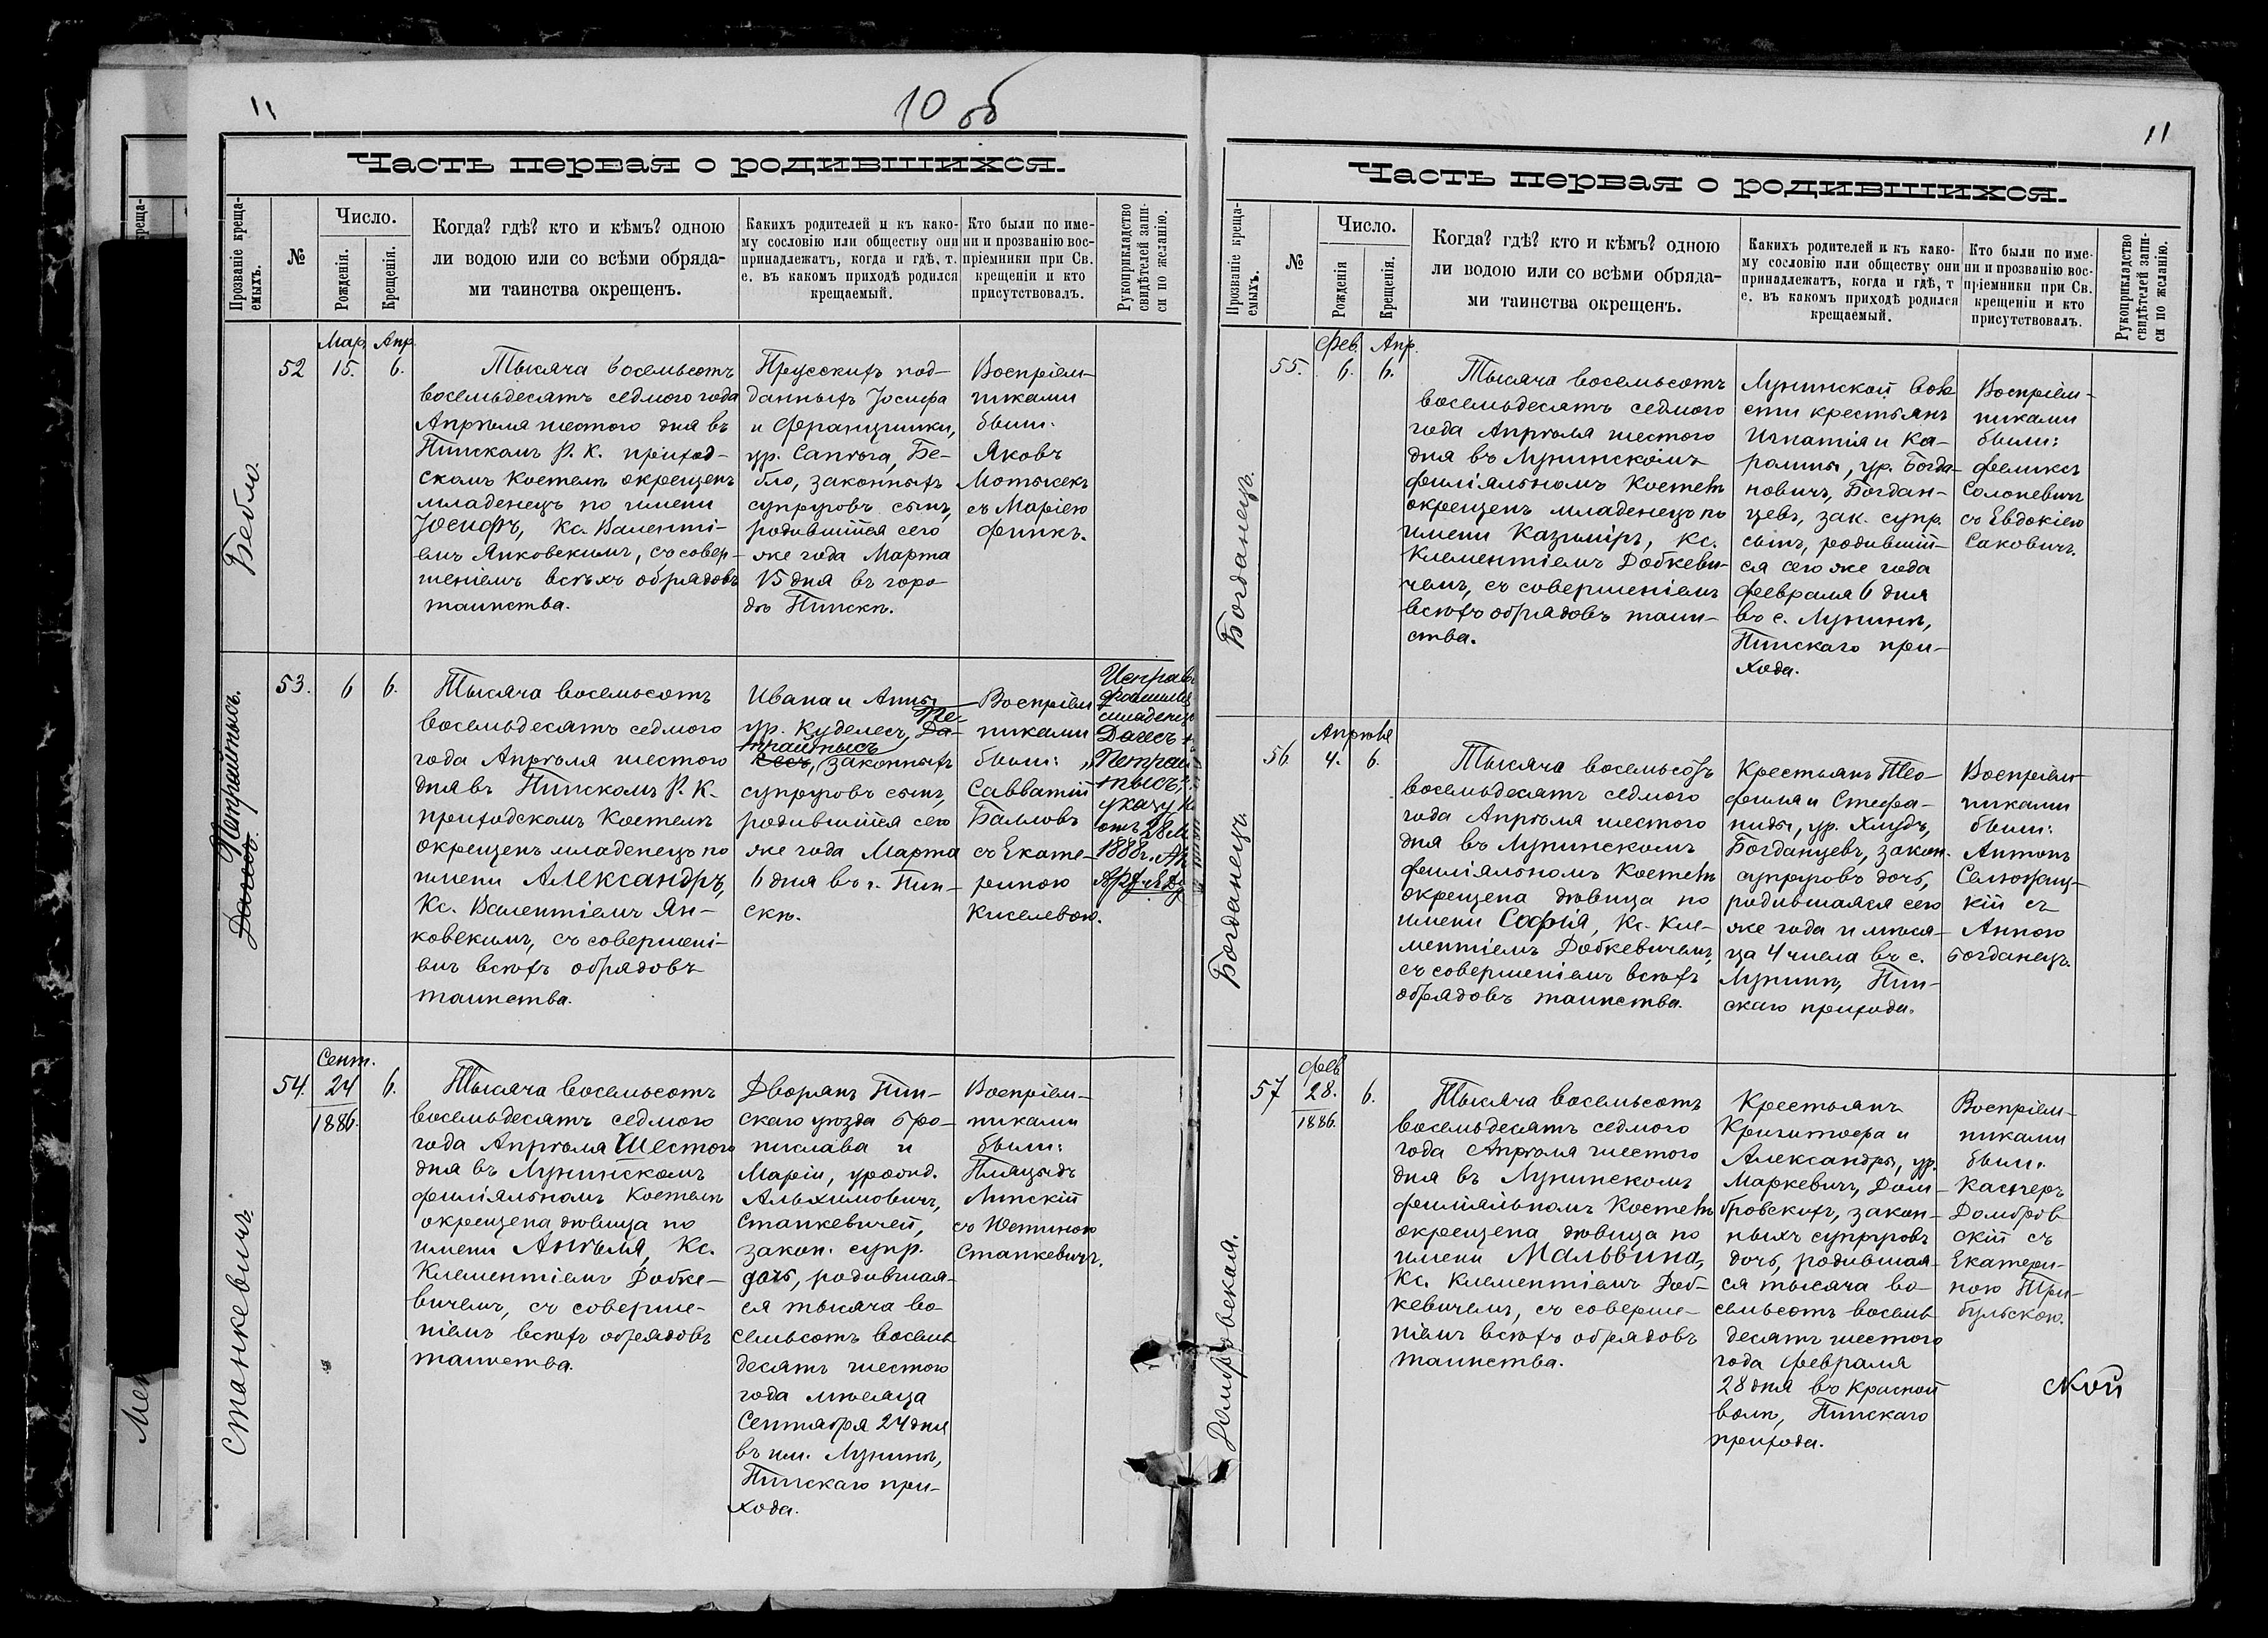 11
10 об
Часть первая о родившихся.
Прозваніе креща-
емыхъ.
№
Число.
Рожденія.
Крещенія.
Когда? гдѣ? кто и кѣмъ? одною
ли водою или со всѣми обряда-
ми таинства окрещенъ.
Какихъ родителей и къ како-
му сословію или обществу они
принадлежатъ, когда и гдѣ, т.
е. въ какомъ приходѣ родился
крещаемый.
Кто были по име-
ни и прозванію вос-
пріемники при Св.
крещеніи и кто
присутствовалъ.
Рукоприкладство
свидѣтелей запи-
си по желанію.
Бебло.
52
Мар.
15.
Апр.
6.
Тысяча восемьсотъ
восемьдесятъ седмого года
Апрѣля шестого дня въ
Пинскомъ Р. К. приход-
скомъ Костелѣ окрещенъ
младенецъ по имени
Іосифъ, Кс. Валенті-
емъ Янковскимъ, съ совер-
шеніемъ всѣхъ обрядовъ
таинства.
Прусскихъ под-
данныхъ Іосифа
и Францишки,
ур. Сапѣга, Бе-
бло, законныхъ
супруговъ сынъ,
родившійся сего
же года Марта
15 дня въ горо-
дѣ Пинскѣ.
Воспріем-
никами
были:
Яковъ
Мотысекъ
съ Маріею
Финкъ.
Дагесъ. Петрайтысъ.
53.
6
6.
Тысяча восемьсотъ
восемьдесятъ седмого
года Апрѣля шестого
дня въ Пинскомъ Р. К.
приходскомъ Костелѣ
окрещенъ младенецъ по
имени Александръ,
Кс. Валентіемъ Ян-
ковскимъ, съ совершені-
емъ всѣхъ обрядовъ
таинства.
Ивана и Анны
Пе-
ур. Куделесъ, Да-
трайтысъ
гесъ, законныхъ
супруговъ сынъ,
родившійся сего
же года Марта
6 дня въ г. Пин-
скѣ.
Воспріем
никами
были:
Савватій
Баловъ
съ Екате-
риною
Киселевою.
Исправ
фамилія
младенца
Дагесъ на
„Петрай
тысъ,
указу
отъ 28 М
1888 г.
54.
Сент.
24
1886.
6.
Станкевичъ.
Тысяча восемьсотъ
восемьдесятъ седмого
года Апрѣля Шестого
дня въ Лунинскомъ
филіяльномъ Костелѣ
окрещена дѣвица по
имени Анѣля, Кс.
Клементіемъ Добке-
вичемъ, съ соверше-
ніемъ всѣхъ обрядовъ
таинства.
Дворянъ Пин-
скаго уѣзда Бро-
нислава и
Маріи, урожд.
Альхимовичъ,
Станкевичей,
закон. супр.
дочь, родившая-
ся тысяча во-
семьсотъ восемь
десятъ шестого
года мѣсяца
Сентября 24 дня
въ им. Лунинѣ,
Пинскаго при-
хода.
Воспріем-
никами
были:
Пляцыдъ
Липскій
съ Юстиною
Станкевичъ.
11
Часть первая о родившихся.
Прозваніе креща-
емыхъ.
№
Число.
Рожденія
Крещенія.
Когда? гдѣ? кто и кѣмъ? одною
ли водою или со всѣми обряда-
ми таинства окрещенъ.
Какихъ родителей и къ како-
му сословію или обществу они
принадлежатъ, когда и гдѣ, т
е. въ какомъ приходѣ родился
крещаемый.
Кто были по име-
ни и прозванію вос-
пріемники при Св.
крещеніи и кто
присутствовалъ.
Рукоприкладство
свидѣтелей запи-
си по желанію.
Богданецъ.
55.
Фев.
6.
Апр.
6.
Тысяча восемьсотъ
восемьдесятъ седмого
года Апрѣля шестого
дня въ Лунинскомъ
филіяльномъ Костелѣ
окрещенъ младенецъ по
имени Казиміръ, Кс.
Клементіемъ Добкеви-
чемъ, съ совершеніемъ
всѣхъ обрядовъ таин-
ства.
Лунинской воло
сти крестьянъ
Игнатія и Ка-
ролины, ур. Богда-
новичъ, Богдан-
цевъ, зак. супр.
сынъ, родившій-
ся сего же года
Февраля 6 дня
въ с. Лунинѣ,
Пинскаго при-
хода.
Воспріем-
никами
были:
Феликсъ
Солоневичъ
съ Евдокіею
Саковичъ.
Богданецъ.
56.
Апрѣля
4.
6.
Тысяча восемьсотъ
восемьдесятъ седмого
года Апрѣля шестого
дня въ Лунинскомъ
филіяльномъ Костелѣ
окрещена дѣвица по
имени Софія, Кс. Кле-
ментіемъ Добкевичемъ,
съ совершеніемъ всѣхъ
обрядовъ таинства.
Крестьянъ Тео-
филя и Стефа-
ниды, ур. Хмудъ,
Богданцевъ, закон.
супруговъ дочь,
родившаяся сего
же года и мѣся-
ца 4 числа въ с.
Лунинѣ, Пин-
скаго прихода.
Воспріем-
никами
были:
Антонъ
кій съ
Анною
Богданецъ.
Домбровская.
57
Фев
28.
1886.
6.
Тысяча восемьсотъ
восемьдесятъ седмого
года Апрѣля шестого
дня въ Лунинскомъ
филіяльномъ Костелѣ
окрещена дѣвица по
имени Мальвина,
Кс. Клементіемъ Доб-
кевичемъ, съ соверше-
ніемъ всѣхъ обрядовъ
таинства.
Крестьянъ
Кригитофа и
Александры, ур.
Маркевичъ, Дом-
бровскихъ, закон-
ныхъ супруговъ
дочь, родившая-
ся тысяча во-
семьсотъ восемь
десятъ шестого
года Февраля
28 дня въ Красной
волѣ, Пинскаго
прихода.
Воспріем-
никами
были:
Касперъ
Домбров
скій съ
Екатери-
ною Три-
бульскою.
ской